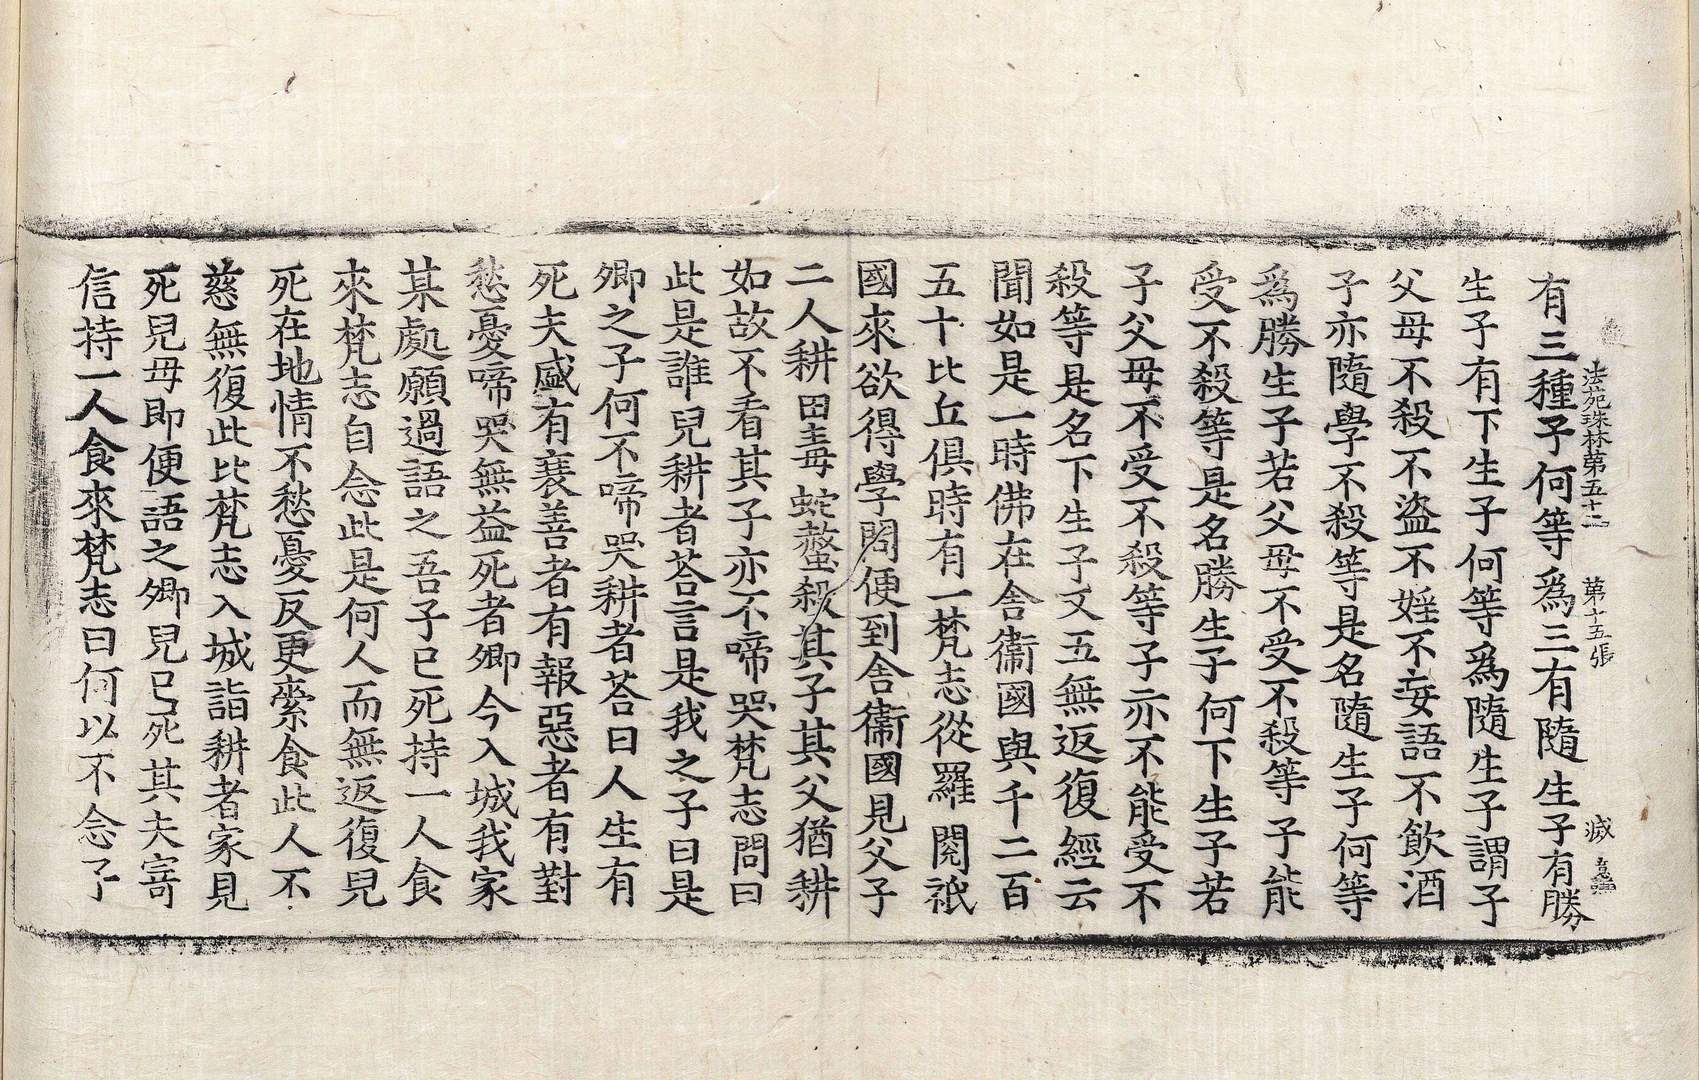 有三種子何等爲三有隨生子有勝
法苑珠林第五十二　第十五張　減
生子有下生子何等爲隨生子謂子
父母不殺不盜不婬不妄語不飮酒
子亦隨學不殺等是名隨生子何等
爲勝生子若父母不受不殺等子能
受不殺等是名勝生子何下生子若
子父母不受不殺等子亦不能受不
殺等是名下生子又五無返復經云
聞如是一時佛在舍衞國與千二百
五十比丘俱時有一梵志從羅閱祇
國來欲得學問便到舍衞國見父子
二人耕田毒蛇螫殺其子其父猶耕
如故不看其子亦不啼哭梵志問曰
此是誰兒耕者荅言是我之子曰是
卿之子何不啼哭耕者荅曰人生有
死夫盛有衰善者有報惡者有對
愁憂啼哭無益死者卿今入城我家
某處願過語之吾子已死持一人食
來梵志自念此是何人而無返復兒
死在地情不愁憂反更索食此人不
慈無復此比梵志入城詣耕者家見
死兒母即便語之卿兒已死其夫寄
信持一人食來梵志曰何以不念子